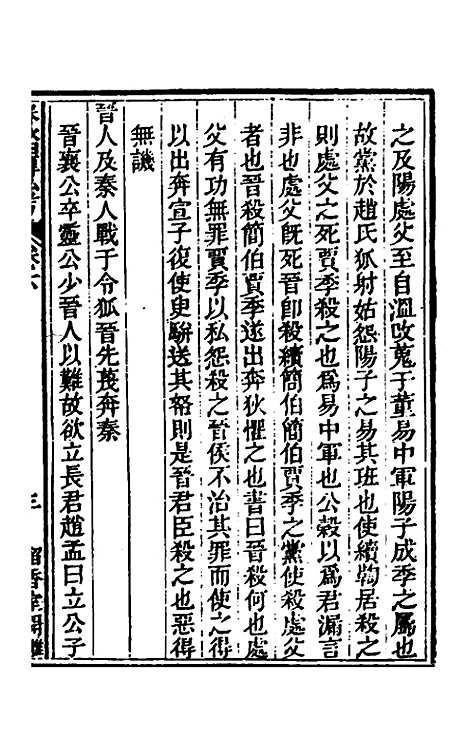 之及陽處父至自溫改蒐于董易中軍陽子成季之屬也
故黨於趙氏狐射姑怨陽子之易其班也使續鞫居殺之
則處父之死賈季殺之也爲易中軍也公穀以爲君漏言
非也處父旣死晉卽殺續簡伯簡伯賈季之黨使殺處父
者也晉殺簡伯賈季遂出奔狄懼之也書曰晉殺何也處
父有功無罪賈季以私怨殺之晉侯不治其罪而使之得
以出奔宣子復使臾駢送其帑則是晉君臣殺之也惡得
無譏
晉人及秦人戰于令狐晉先蔑奔秦
晉襄公卒靈公少晉人以難故欲立長君趙孟曰立公子
卷六
三